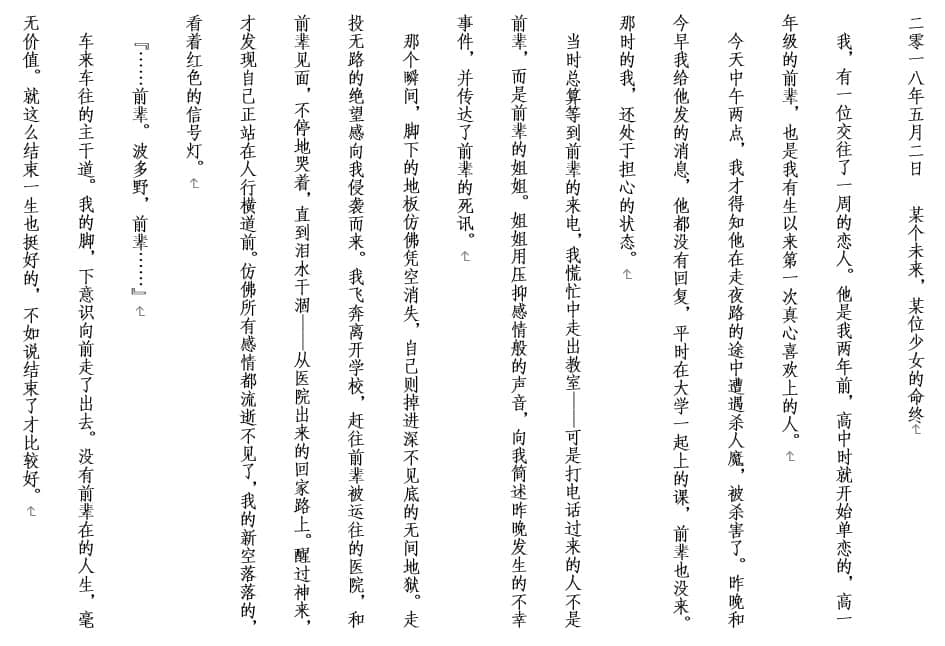 二零一八年五月二日　　某个未来，某位少女的命终↵
　我，有一位交往了一周的恋人。他是我两年前，高中时就开始单恋的，高一
年级的前辈，也是我有生以来第一次真心喜欢上的人。↵
　今天中午两点，我才得知他在走夜路的途中遭遇杀人魔，被杀害了。昨晚和
今早我给他发的消息，他都没有回复，平时在大学一起上的课，前辈也没来。
那时的我，还处于担心的状态。↵
　当时总算等到前辈的来电，我慌忙中走出教室——可是打电话过来的人不是
前辈，而是前辈的姐姐。姐姐用压抑感情般的声音，向我简述昨晚发生的不幸
事件，并传达了前辈的死讯。↵
　那个瞬间，脚下的地板仿佛凭空消失，自己则掉进深不见底的无间地狱。走
投无路的绝望感向我侵袭而来。我飞奔离开学校，赶往前辈被运往的医院，和
前辈见面，不停地哭着，直到泪水干涸——从医院出来的回家路上。醒过神来，
才发现自己正站在人行横道前。仿佛所有感情都流逝不见了，我的新空落落的，
看着红色的信号灯。↵
　『……前辈。波多野，前辈……』↵
　车来车往的主干道。我的脚，下意识向前走了出去。没有前辈在的人生，毫
无价值。就这么结束一生也挺好的，不如说结束了才比较好。↵